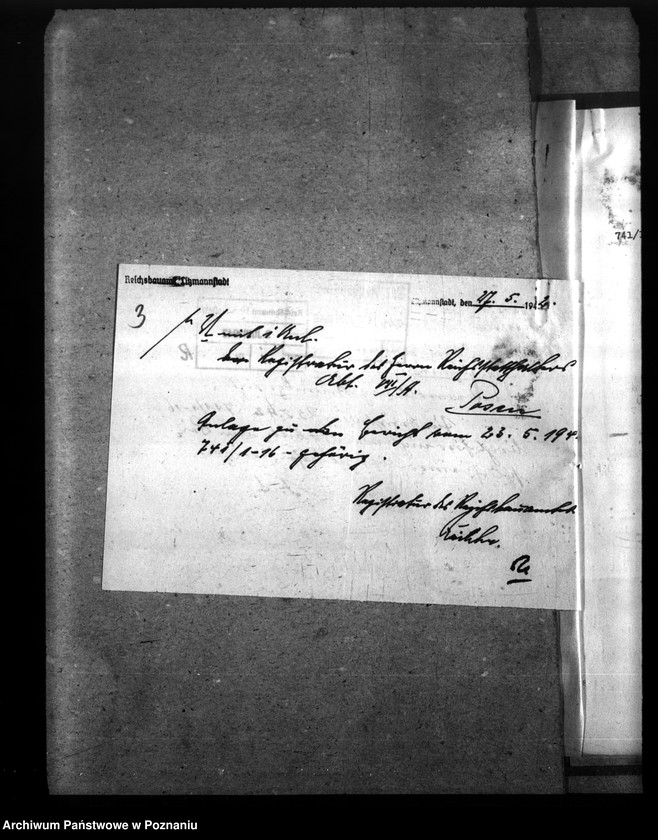 Reichsbauamt Litzmannstadt
Litzmannstadt, den 27. 5. 194
3
U mit 1 Anl.
der Registratur des Herrn Reichsstatthalters
Abt. VII/A.
Posen
Anlage zu dem Bericht vom 23. 5. 194
741/1-16 - gehörig.
Registratur des Reichsbauamtes
741/
Archiwum Państwowe w Poznaniu